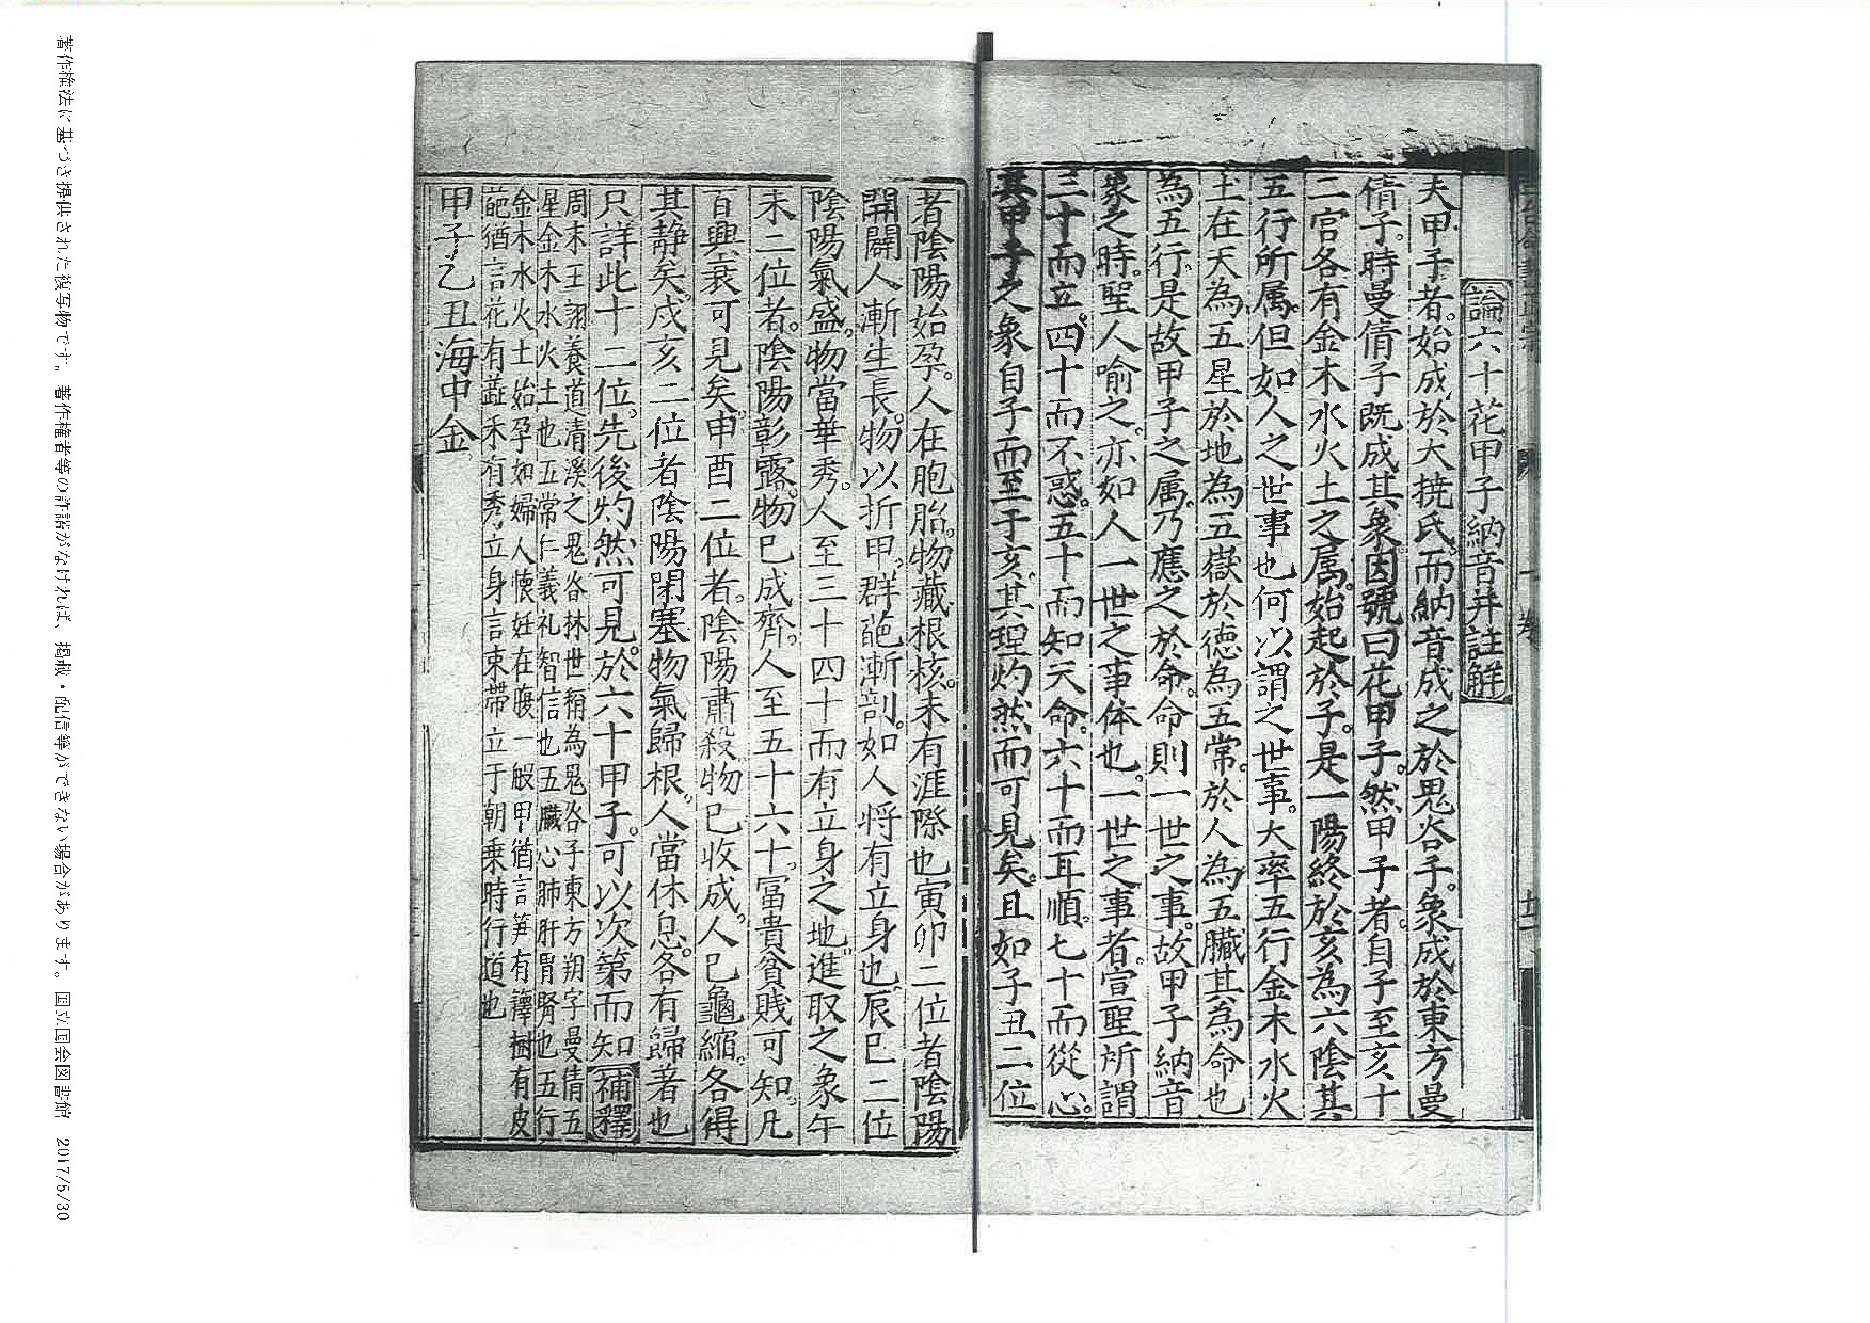 論六十花甲子納音并註解
夫甲子者。始成於大撓氏。而納音成之於鬼谷子。象成於東方曼
倩子。時曼倩子既成其象。因號曰花甲子。然甲子者。自子至亥十
二宮各有金木水火土之属。始起於子。是一陽終於亥為六陰其
五行所属。但如人之世事也何以謂之世事。大率五行金木水火
土在天為五星於地為五嶽於德為五常。於人為五臟其為命也
為五行。是故甲子之属。乃應之於命。命則一世之事。故甲子納音
象之時。聖人喻之。亦如人一世之事体也。一世之事者。宣聖所謂
三十而立。四十而不惑。五十而知天命。六十而耳順。七十而從心。
其甲子之象自子而至于亥。其理灼然而可見矣。且如子丑二位
者陰陽始孕。人在胞胎。物藏根核。未有涯際也寅卯二位者陰陽
開闢人漸生長。物以折甲。群葩漸剖。如人将有立身也辰巳二位
陰陽氣盛。物當華秀。人至三十四十而有立身之地。進取之象午
未二位者。陰陽彰露。物已成齊。人至五十六十。富貴貧賎可知。凡
百興衰可見矣。申酉二位者。陰陽肅殺。物已收成。人已龜縮。各得
其静矣。戌亥二位者陰陽閉塞物氣歸根。人當休息。各有歸著也
只詳此十二位。先後灼然可見。於六十甲子。可以次第而知 補釋
周末王詡養道清溪之鬼谷林世稱為鬼谷子東方朔字曼倩五
星金木水火土也五常仁義礼智信也五臟心肺肝胃腎也五行
金木水火土始孕如婦人懷妊在腹一般甲猶言笋有籜樹有皮
葩猶言花有蕋禾有秀立身言束帶立于朝乗時行道也
甲子乙丑海中金。
著作権法に基づき提供された複写物です。著作権者等の許諾がなければ、掲載・配信等ができない場合があります。国立国会図書館 2017/5/30